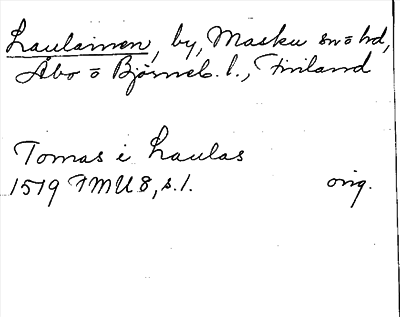 Laulainen, by, Masku sn o hd,
Åbo o Björneb. l., Finland
Tomas i Laulas
1519 TMU 8, s. 1. orig.